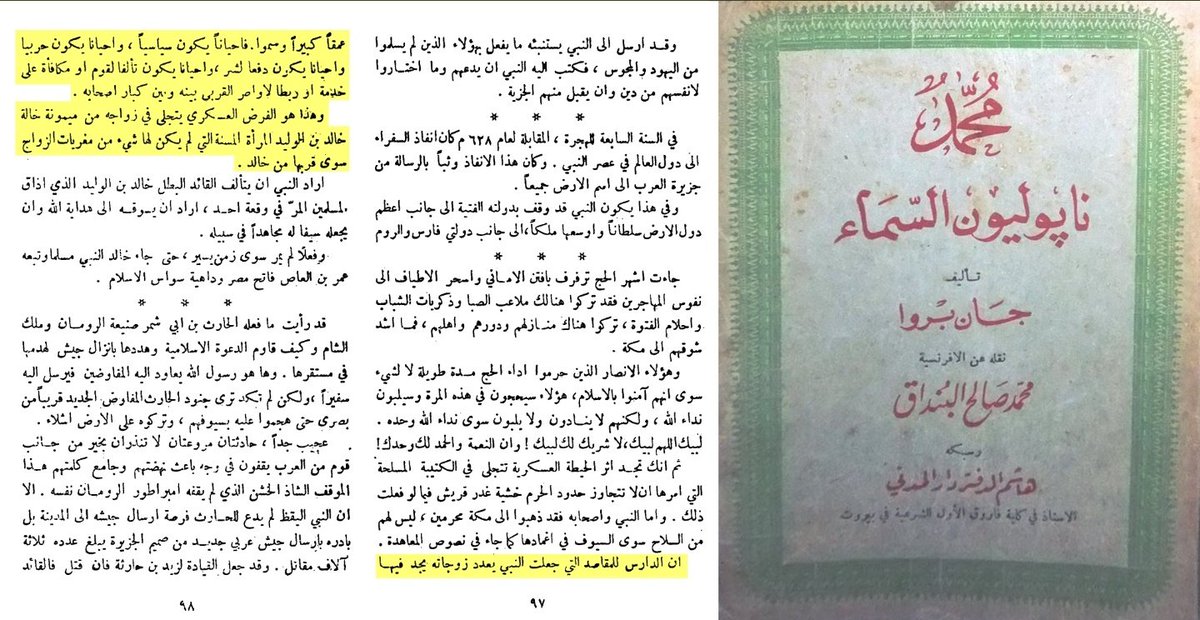 محمد
ناپوليون السماء
تأليف
جان بروا
نقله عن الافرنسية
محمد صالح البنداق
وسبكه
هاشم الدفتردار المدني
الاستاذ في كلية فاروق الأول الشرعية في بيروت
وقد ارسل الى النبي يستنبئه ما يفعل بهؤلاء الذين لم يسلموا
من اليهود والمجوس ، فكتب اليه النبي ان يدعهم وما اختاروا
لانفسهم من دين وان يقبل منهم الجزية .
* * *
في السنة السابعة للهجرة ، المقابلة لعام ٦٢٨ م كان انفاذ السفراء
الى دول العالم في عصر النبي . وكان هذا الانفاذ وثباً بالرسالة من
جزيرة العرب الى اسم الارض جميعاً .
وفي هذا يكون النبي قد وقف بدولته الفتية الى جانب اعظم
دول الارض سلطاناً واوسعها ملكاً، الى جانب دولتي فارس والروم
* * *
جاءت اشهر الحج ترفرف بافتن الاماني واسحر الاطياف الى
نفوس المهاجرين فقد تركوا هنالك ملاعب الصبا وذكريات الشباب
واحلام الفتوة ، تركوا هناك منازلهم ودورهم واهليهم ، فما اشد
شوقهم الى مكة .
وهؤلاء الانصار الذين حرموا اداء الحج مدة طويلة لا لشيء
سوى انهم آمنوا بالاسلام، هؤلاء سيحجون في هذه المرة وسيلبون
نداء الله ، ولكنهم لا ينادون ولا يلبون سوى نداء الله وحده .
لبيك اللهم لبيك، لا شريك لك لبيك ! وان النعمة والحمد لك وحدك!
ثم انك تجد اثر الحيطة العسكرية تتجلى في الكتيبة المسلحة
التي امرها ان لا تتجاوز حدود الحرم خشية غدر قريش فيما لو فعلت
ذلك . واما النبي واصحابه فقد ذهبوا الى مكة محرمين ، ليس لهم
من السلاح سوى السيوف في اغمادها كما جاء في نصوص المعاهدة .
ان الدارس للمقاصد التي جعلت النبي يعدد زوجاته يجد فيها
٩٧
عمقاً كبيراً وسموا. فاحياناً يكون سياسياً ، واحيانا يكون حربيا
واحيانا يكون دفعا لشر ، واحيانا يكون تألفا لقوم او مكافأة على
خدمة او ربطا لاواصر القربى بينه وبين كبار اصحابه .
وهذا هو الغرض العسكري يتجلى في زواجه من ميمونة خالة
خالد بن الوليد المرأة المسنة التي لم يكن لها شيء من مغريات الزواج
سوى قربها من خالد .
اراد النبي ان يتألف القائد البطل خالد بن الوليد الذي اذاق
المسلمين المرّ في وقعة احد ، اراد ان يسوقه الى هداية الله وان
يجعله سيفا له مجاهداً في سبيله .
وفعلاً لم يمر سوى زمن يسير ، حتى جاء خالد النبي مسلما وتبعه
عمر بن العاص فاتح مصر وداهية سواس الاسلام .
* * *
قد رأيت ما فعله الحارث بن ابي شمر صنيعة الرومان وملك
الشام وكيف قاوم الدعوة الاسلامية وهددها بانزال جيش لهدمها
في مستقرها . وها هو رسول الله يعاود اليه المفاوضين فيرسل اليه
سفيراً ، ولكن لم تكد ترى جنود الحارث المفاوض الجديد قريباً من
بصرى حتى هجموا عليه بسيوفهم ، وتركوه على الارض اشلاء .
عجيب جداً ، حادثتان مروعتان لا تنذران بخير من جانب
قوم من العرب يقفون في وجه باعث نهضتهم وجامع كلمتهم هذا
الموقف الشاذ الخشن الذي لم يقفه امبراطور الرومان نفسه . الا
ان النبي اليقظ لم يدع للحارث فرصة ارسال جيشه الى المدينة بل
بادره بإرسال جيش عربي جديد من صميم الجزيرة يبلغ عدده ثلاثة
آلاف مقاتل . وقد جعل القيادة لزيد بن حارثة فان قتل فالقائد
٩٨